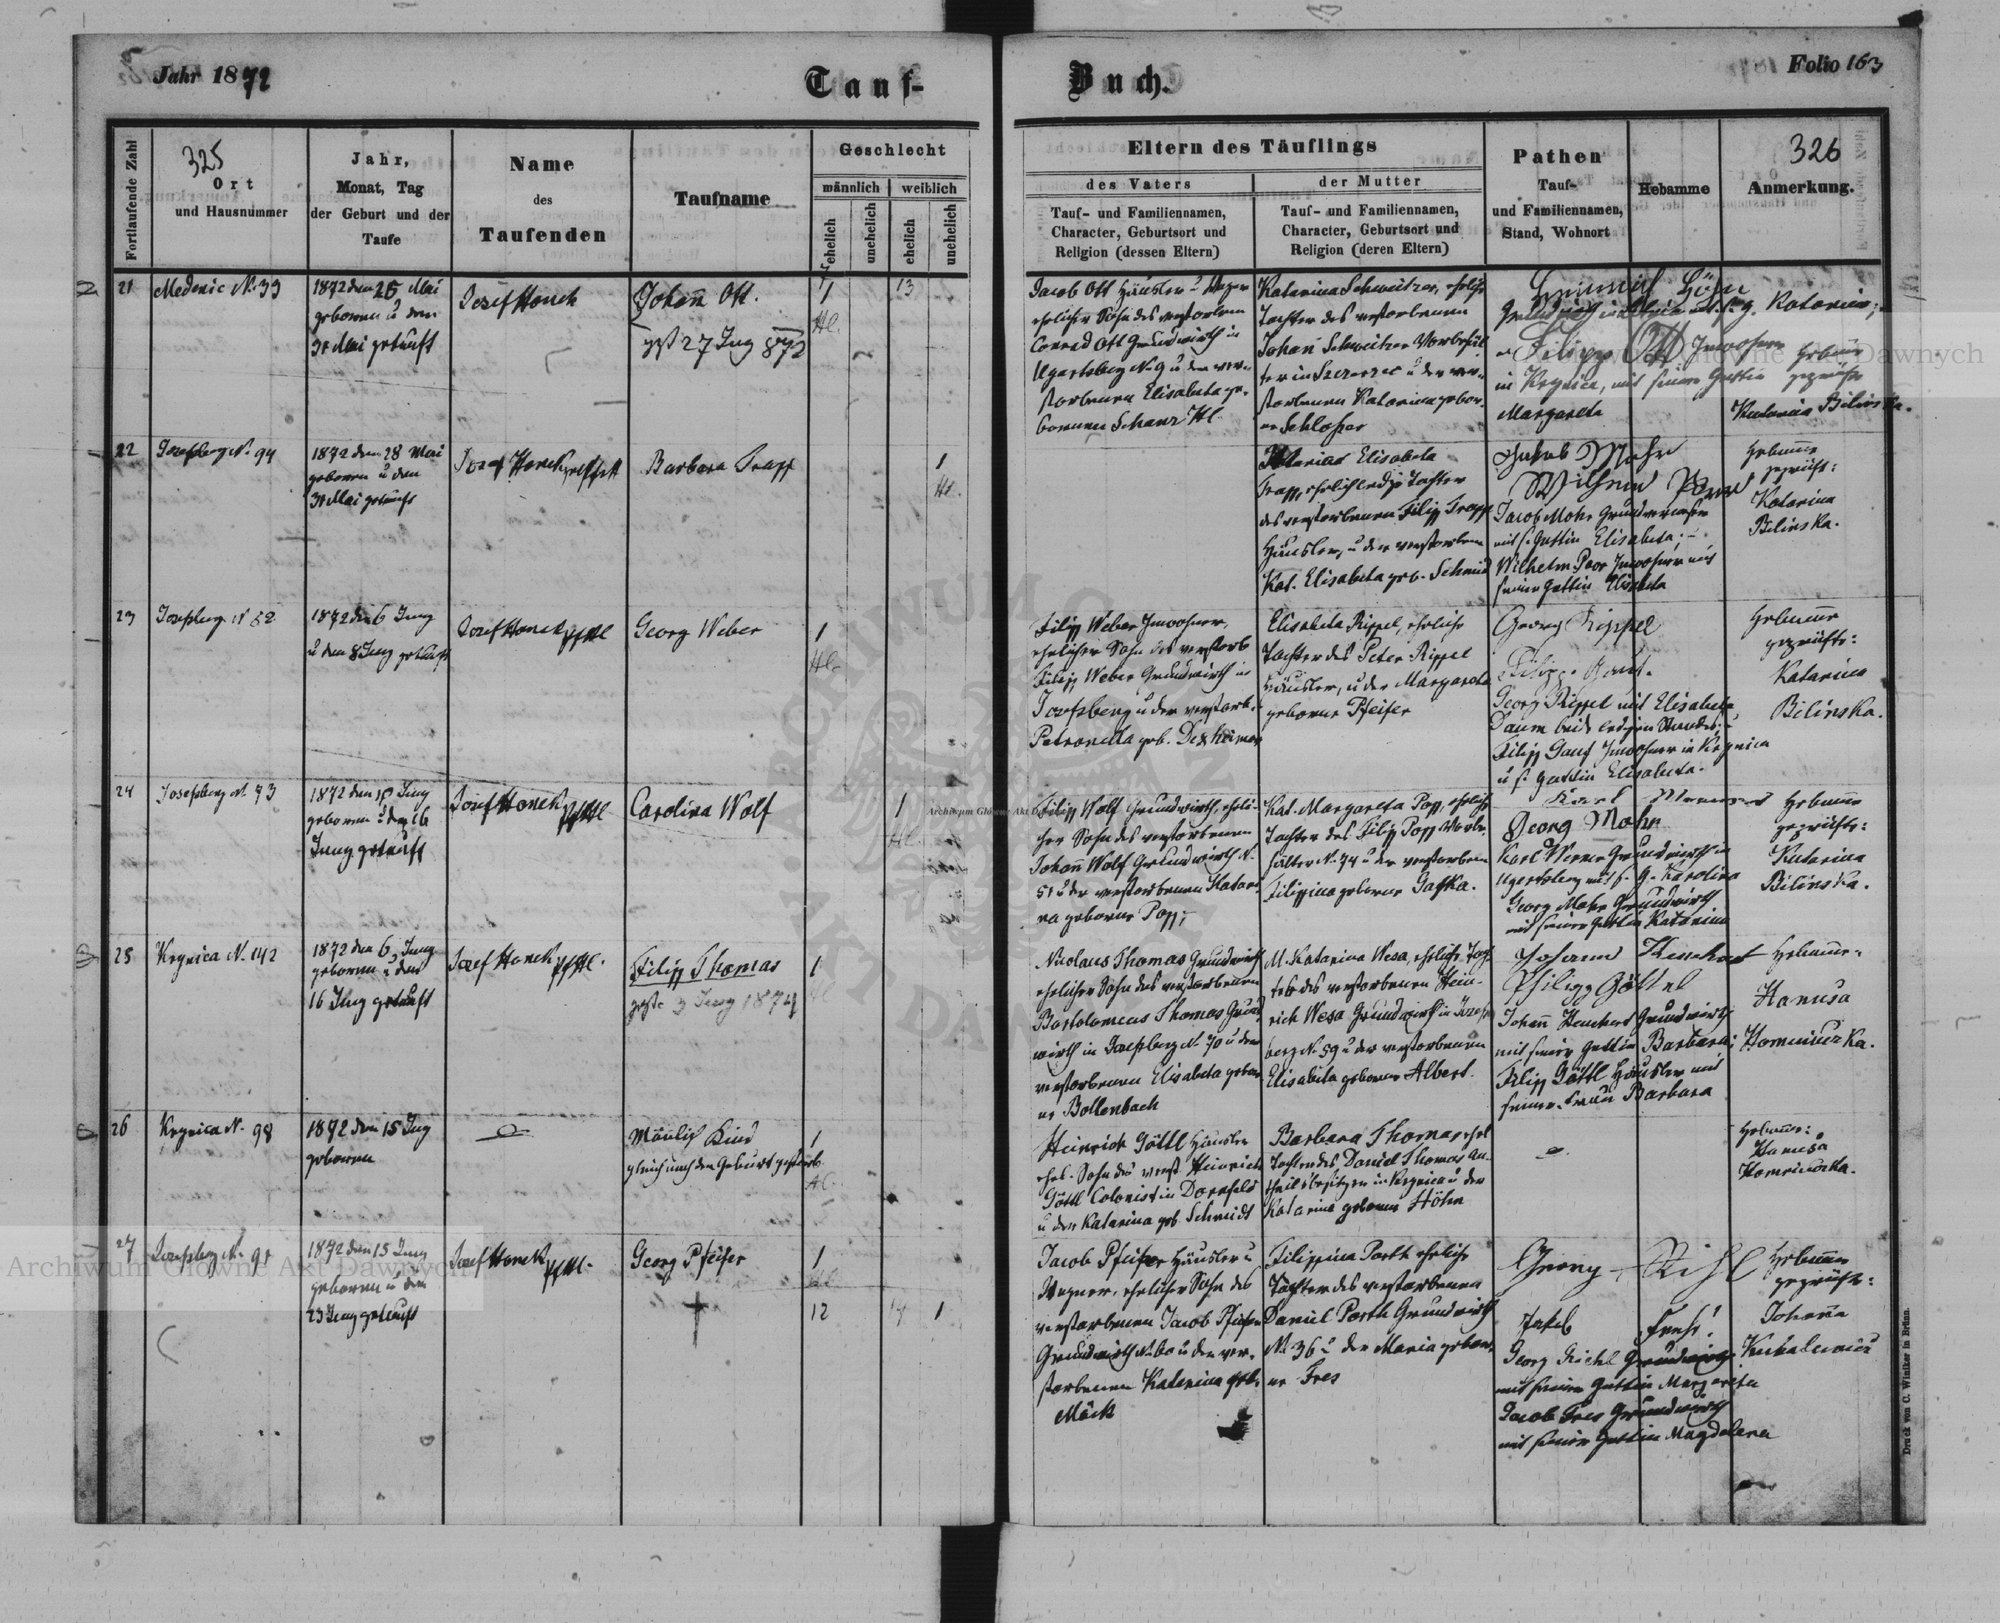 Jahr 1872
Tauf-
Buch.
Folio 163
325
326
Fortlaufende Zahl
Ort
und Hausnummer
Jahr,
Monat, Tag
der Geburt und der
Taufe
Name
des
Taufenden
Taufname
Geschlecht
männlich
weiblich
ehelich
unehelich
ehelich
unehelich
Eltern des Täuflings
des Vaters
der Mutter
Tauf- und Familiennamen,
Character, Geburtsort und
Religion (dessen Eltern)
Tauf- und Familiennamen,
Character, Geburtsort und
Religion (deren Eltern)
Pathen
Tauf-
und Familiennamen,
Stand, Wohnort
Hebamme
Anmerkung.
21
Medenic No. 33
1872 den 25 Mai
geboren u den
31 Mai getauft
Josef Honek
Johann Ott.
gest 27 Juny 872
1
Hl.
13
Jacob Ott Häusler u Wagner
ehelicher Sohn des verstorbenen
Conrad Ott Grundwirth in
Ugartsberg No 9 u der ver-
storbenen Elisabeta ge-
bornen Schanz Hl
Katarina Schweitzer, eheliche
Tochter des verstorbenen
Johann Schweitzer
u der ver-
storbenen Katarina gebor-
ne Schlosser
Katarina;
Filipp Ott Inwohner
in Krynica, mit seiner Gattin
Margareta
Hebame
geprüfte
Katarina Bilinska.
22
Josefsberg No. 94
1872 den 28 Mai
geboren u den
31 Mai getauft
Josef Honek
Barbara Trapp
1
Hl.
Elisabeta
Trapp, ehelich ledige Tochter
des verstorbenen Filipp Trapp
Häusler, u der verstorbenen
Kat. Elisabeta geb. Schmid
Jakob Mohr
Wilhelm Poor
Jacob Mohr
mit s. Gattin Elisabeta; -
Wilhelm Poor Inwohner mit
seiner Gattin Elisabeta
Hebame
geprüft:
Katarina
Bilinska.
23
Josefsberg N 52
1872 den 6 Juny
u den 8 Juny getauft
Josef Honek
Georg Weber
1
Hl.
Filipp Weber Inwohner,
ehelicher Sohn des verstorb
Filipp Weber Grundwirth in
Josefsberg u der verstorb.
Petronella geb. Dexheimer
Elisabeta Rippel, eheliche
Tochter des Peter Rippel
Häusler, u der Margareta
geborne Pfeifer
Georg Rippel
Georg Rippel mit Elisabeta
Daum beide ledigen Standes;
Filipp Inwohner in Krynica
u s. Gattin Elisabeta.
Hebame
geprüfte:
Katarina
Bilinska.
24
Josefsberg N. 73
1872 den Juny
geboren u den 16
Juny getauft
Josef Honek
Carolina Wolf
1
Hl.
Filipp Wolf Grundwirth, eheli-
cher Sohn des verstorbenen
Johann Wolf Grundwirth N.
51 u der verstorbenen Katari-
na geborne Popp;
Kat. Margareta Popp, eheliche
Tochter des Filipp Popp
No. 74 u der verstorbenen
Filippina geborne Gafka.
Karl Werner
Georg Mohr
Karl Werner Grundwirth in
Ugartsberg mit s. G. Karolina
Georg Mohr Grundwirth
mit seiner Gattin Katarina
Hebame
geprüfte:
Katarina
Bilinska.
25
Krynica N. 142
1872 den 6 Juny
geboren u den
16 Juny getauft
Josef Honek
Filipp Thomas
gest. 3 Juny 1874
1
Nicolaus Thomas Grundwirth
ehelicher Sohn des verstorbenen
Bartolomeus Thomas Grund
wirth in Josefsberg N. 70 u der
verstorbenen Elisabeta gebor-
ne Bollenbach
M. Katarina Wesa, eheliche Toch
ter des verstorbenen Hein-
rich Wesa Grundwirth in Josefs
berg N. 59 u der verstorbenen
Elisabeta geborne Albert.
Johann Henchert
Philipp Göttel
Johann Henchert Grundwirth
mit seiner Gattin Barbara;
Filipp Göttl Häusler mit
seiner Frau Barbara
Hebame.
Hanusa
26
Krynica N. 98
1872 den 15 Juny
geboren
Mänlich Kind
gleich nach der Geburt gestorb.
1
Hl.
Heinrich Göttl Häusler
ehel. Sohn des verst Heinrich
Göttl Colonist in Dornfeld
u der Katarina geb Schmidt
Barbara Thomas ehel
Tochter des Daniel Thomas An-
theilsbesitzer in Krynica u der
Katarina geborne Höhn
Hebame:
Hanusa
27
Josefsberg No. 91
1872 den 15 Juny
geboren u den
23 Juny getauft
Josef Honek
Georg Pfeifer
1
12
14
1
Jacob Pfeifer Häusler u
Wagner, ehelicher Sohn des
verstorbenen Jacob Pfeifer
Grundwirth No. 60 u der ver-
storbenen Katarina geb.
Mäck
Filippina Porth eheliche
Tochter des verstorbenen
Daniel Porth Grundwirth
N. 36 u der Maria gebor-
ne Fres
Georg Riehl
Jakob
Georg Riehl Grundwirth
mit seiner Gattin Margareta
Jacob Fres Grundwirth
mit seiner Gattin Magdalena
Hebame
geprüfte:
Johanna
Druck von C. Winiker in Brünn.
Archiwum Główne Akt Dawnych
Archiwum Główne Akt Dawnych